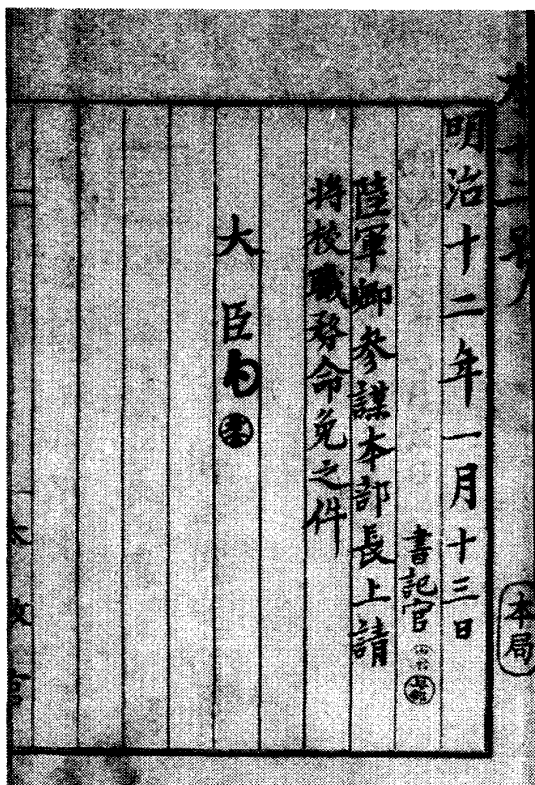 本局
明治十二年一月十三日
書記官
陸軍卿参謀本部長上請
将校職務命免之件
大臣